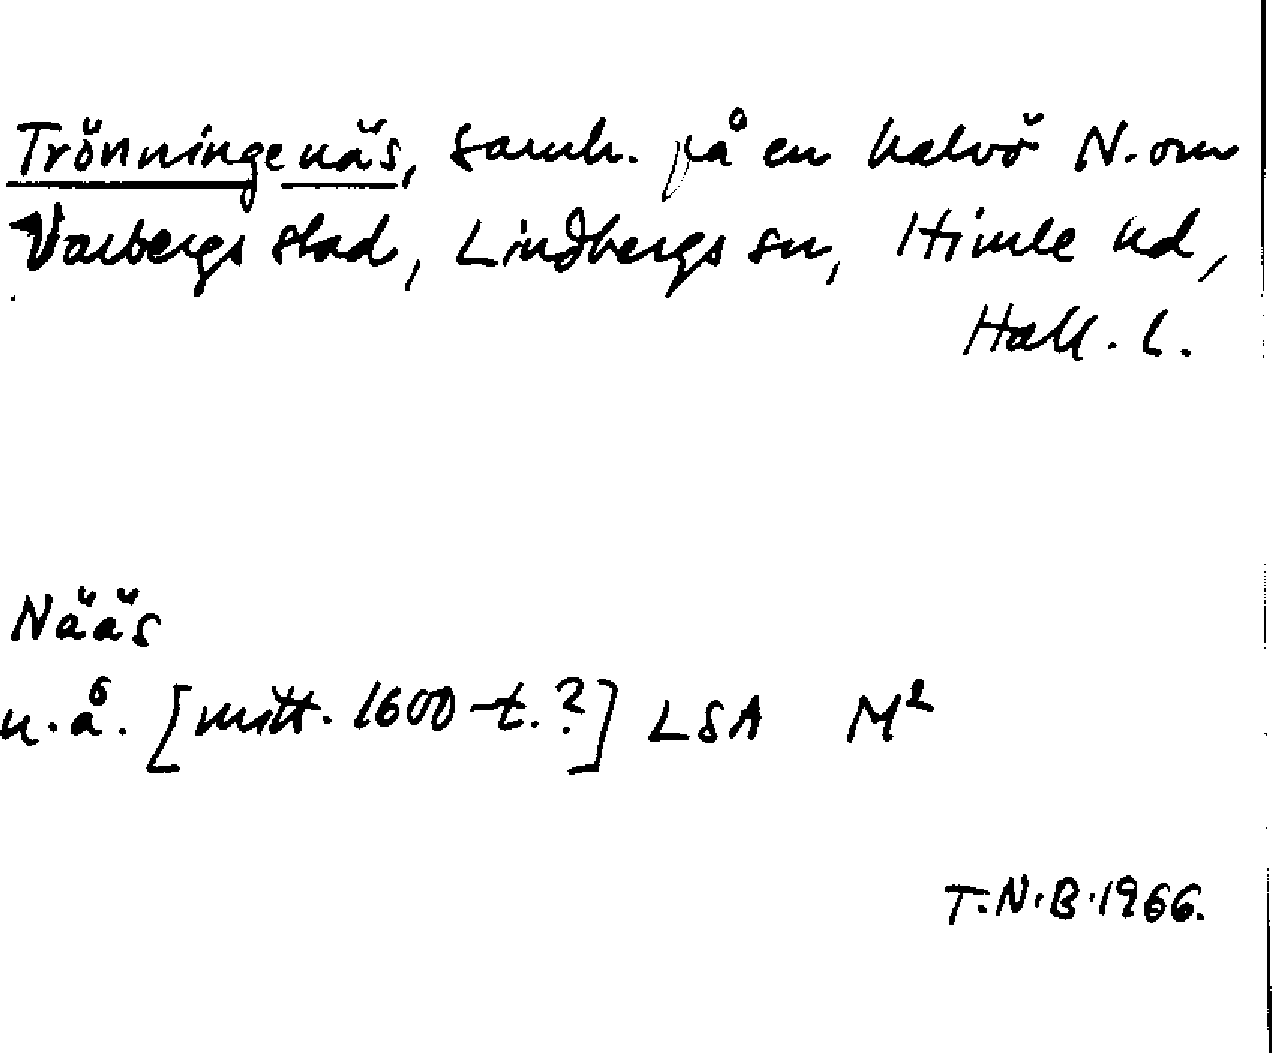 Trönningenäs, samh. på en halvö N. om
Varbergs stad, Lindbergs sn, Himle hd,
Hall. l.
Nääs
u.å. [mitt. 1600-t.?] LSA M²
T.N.B. 1966.